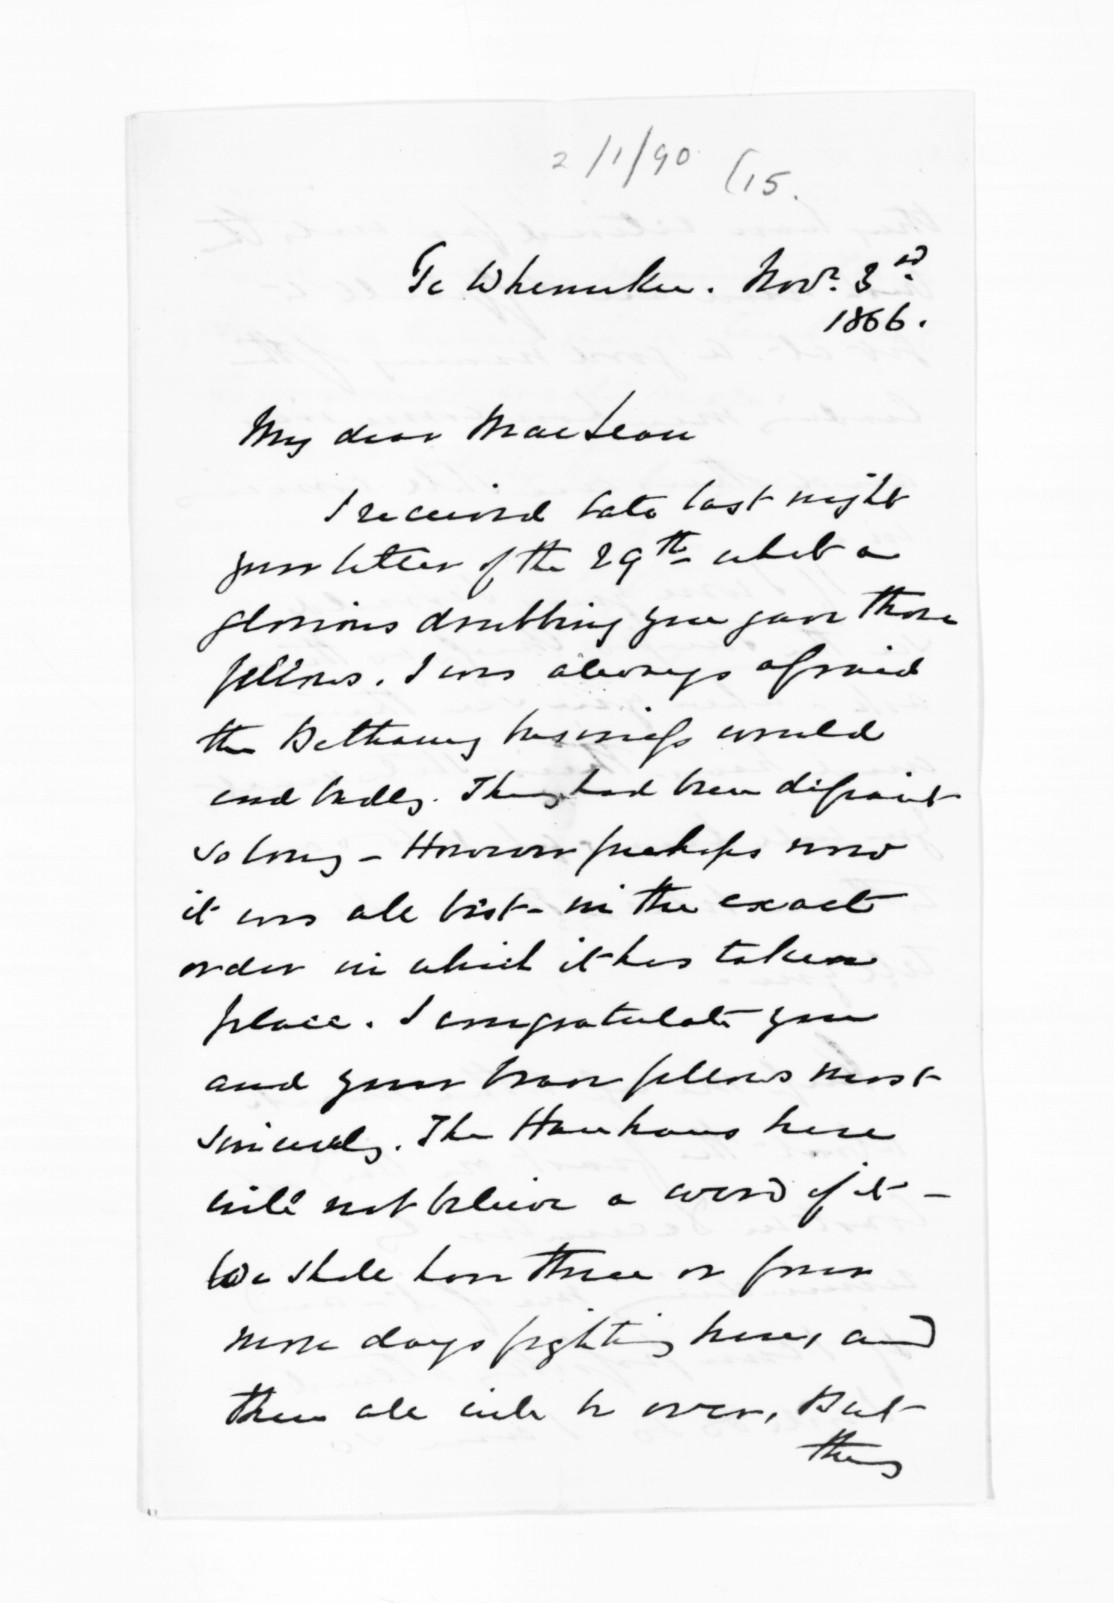 2/1/90 (15.
Te Whenuku. Novr. 3rd
1866.
My dear MacLean
I received late last night
your letter of the 29th - what a
glorious drubbing you gave those
fellows. I was always afraid
the Bethany business would
end badly. They had been defiant
so long - However perhaps now
it was all best - in the exact
order in which it has taken
place. I congratulate you
and your brave fellows most
sincerely. The Hauhaus here
will not believe a word of it -
We shall have three or four
more days fighting here, and
then all will be over, But
they